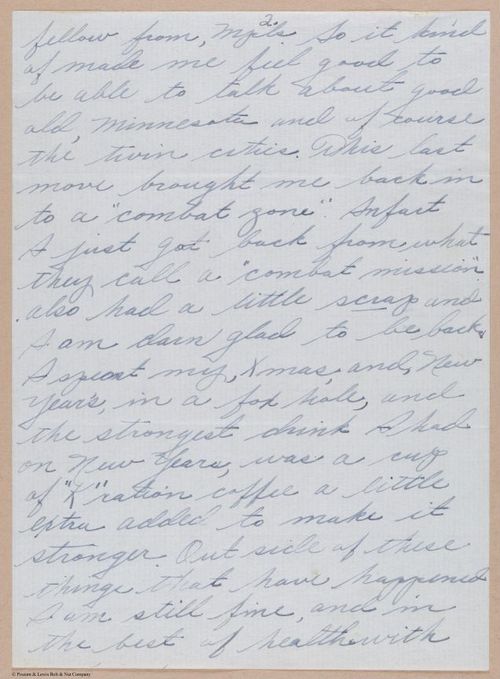 2.
fellow from, Mpls. So it kind
of made me feel good to
be able to talk about good
old, Minnesota and of course
the twin cities. This last
move brought me back in
to a "combat zone". Infact
I just got back from what
they call a "combat mission"
also had a little scrap and
I am darn glad to be back,
I spent my, Xmas, and, New
Year's, in a fox hole, and
the strongest drink I had
on New Years, was a cup
of "K" ration coffee a little
extra added to make it
stronger. Out side of these
things that have happened
I am still fine, and in
the best of health with
© Possum & Lewis Bolt & Nut Company